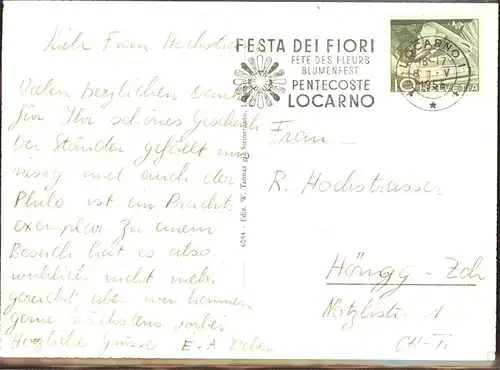 Liebe Frau Hochstrasser
Vielen herzlichen Dank
für Ihr schönes Geschenk
Der Ständer gefällt uns
rassig und auch der
Philo ist ein Pracht's
exemplar. Zu einem
Besuch hat es also
wirklich nicht mehr
gereicht, aber wir kommen
gerne nächstens vorbei
Herzliche Grüsse E + A
FESTA DEI FIORI
FÊTE DES FLEURS
BLUMENFEST
PENTECOSTE
LOCARNO
LOCARNO 1
18-17
10 HELVETIA
6084 - Ediz. W. Tannaz
Frau
R. Hochstrasser
Höngg - Zch
1
CH-TI